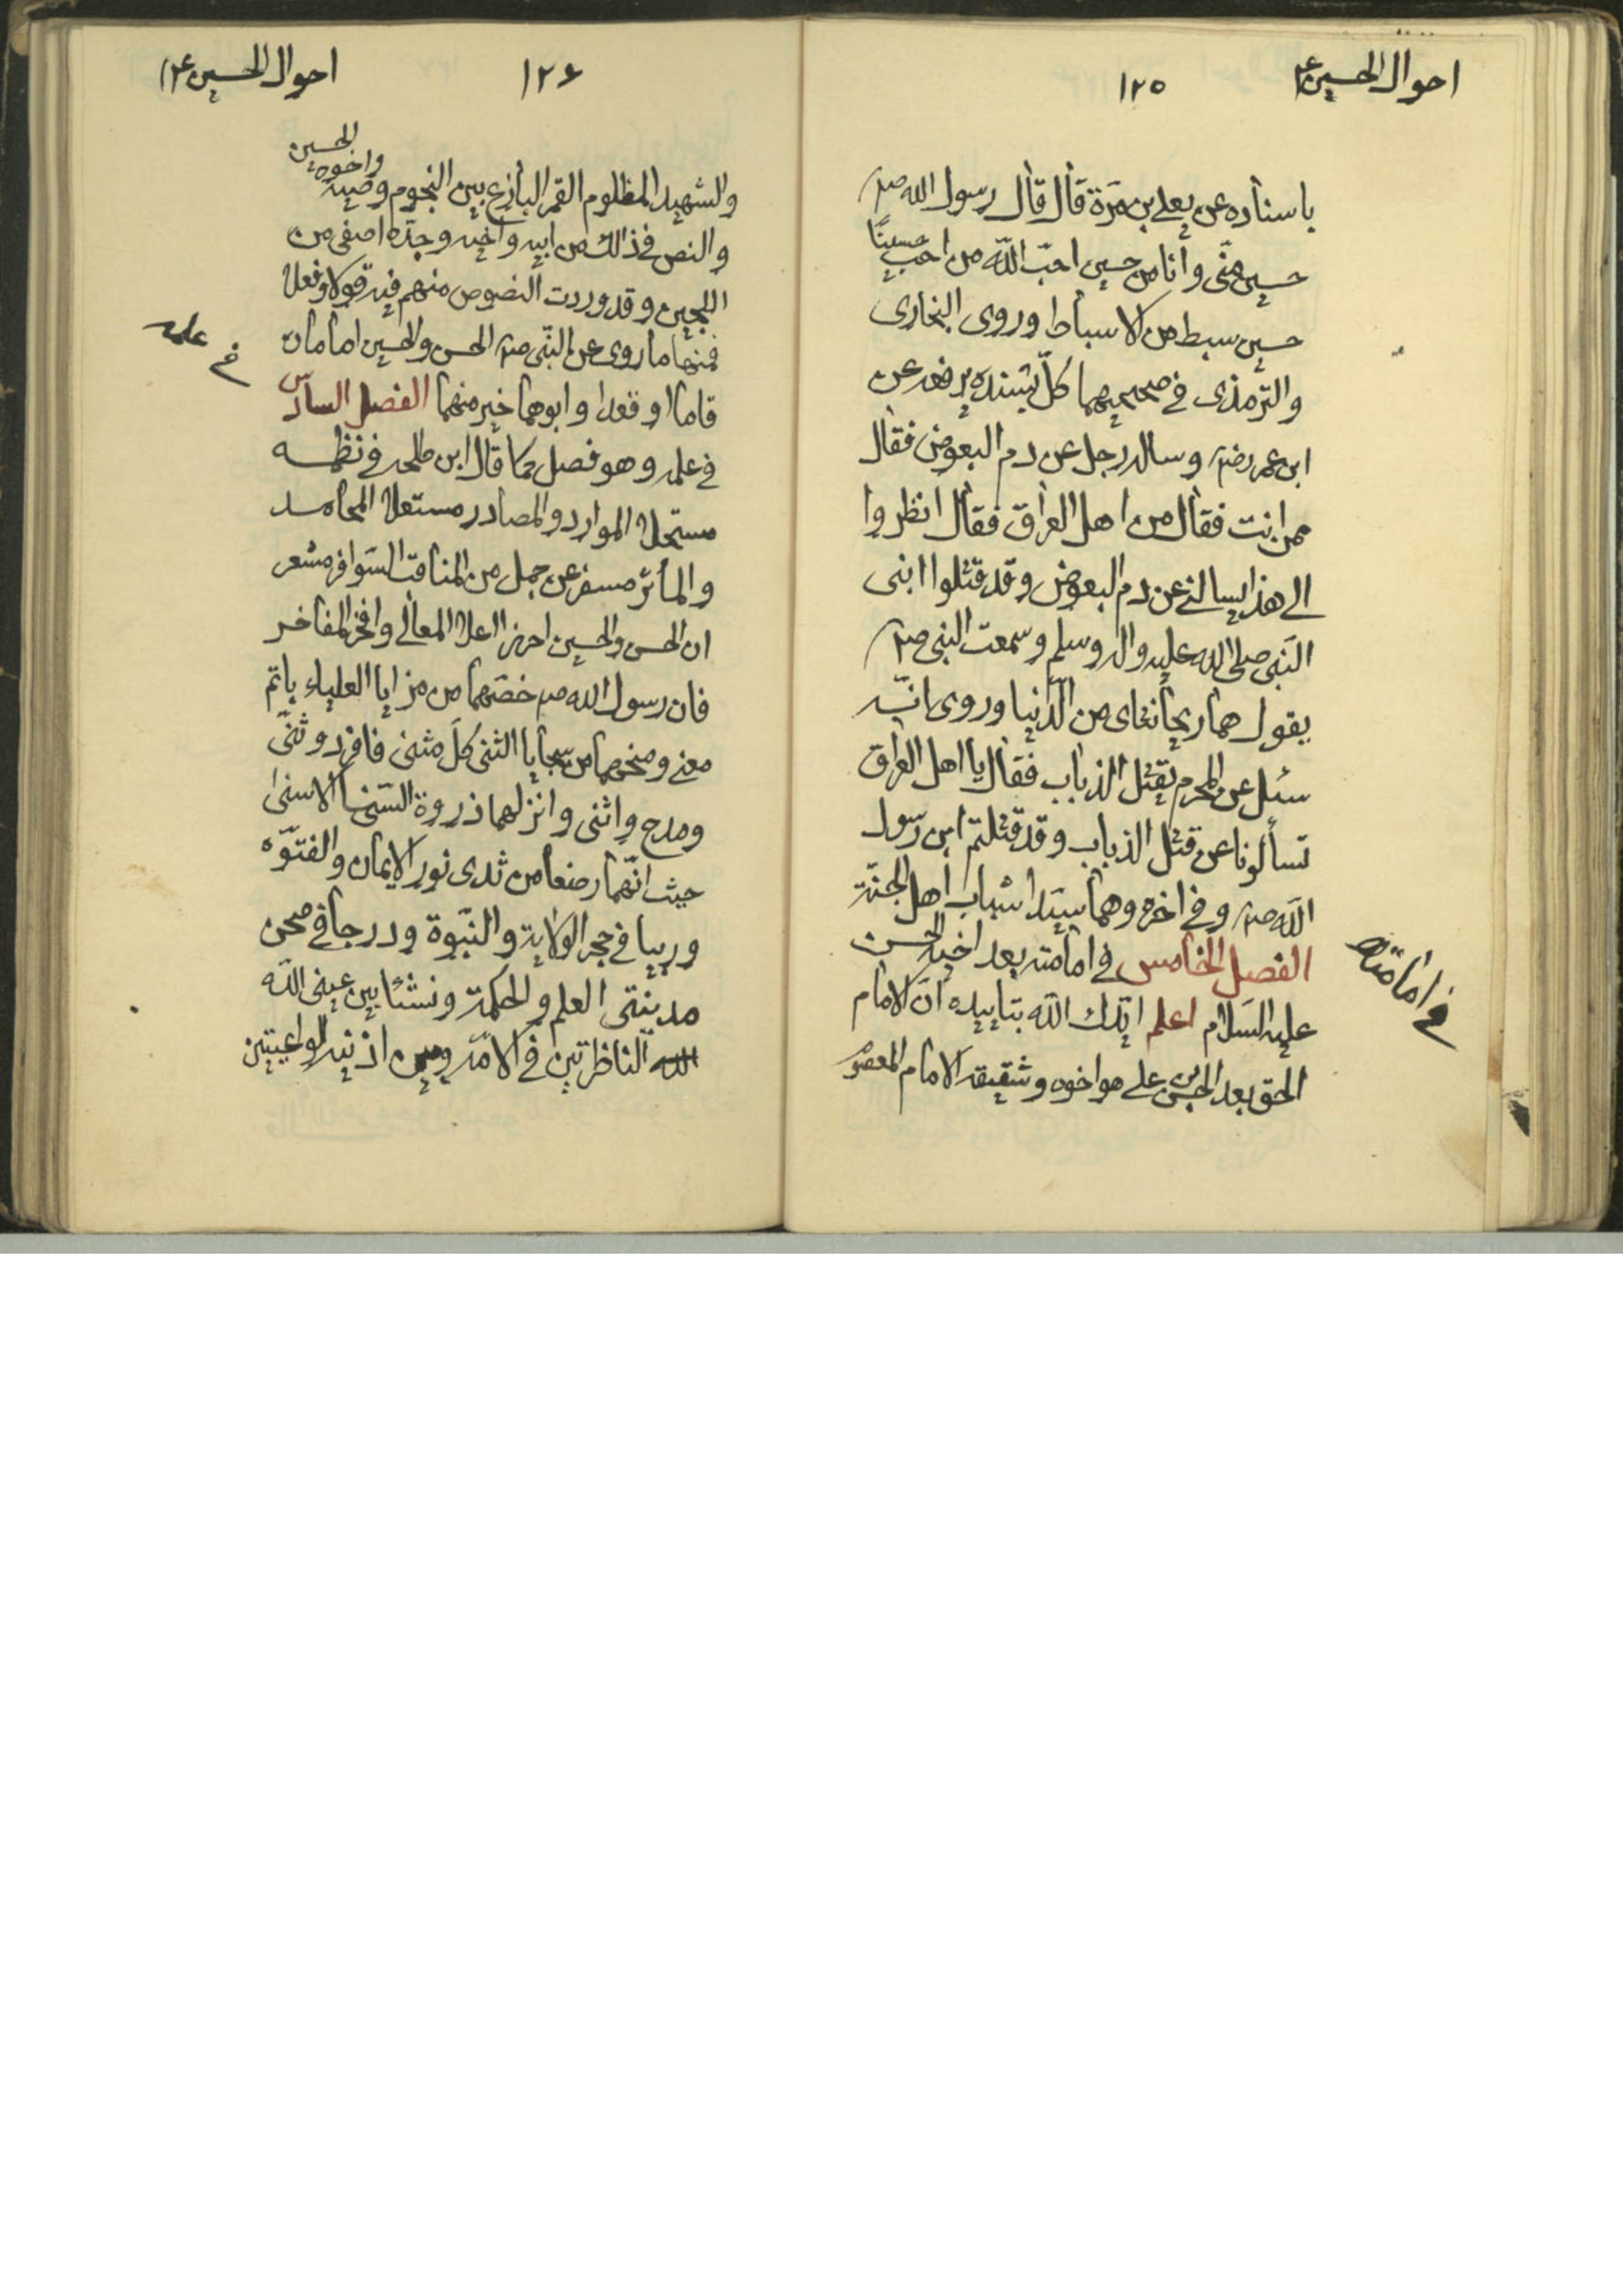 احوال الحسين ع
١٢٥
باسناده عن يعلى بن مرة قال قال رسول الله ص
حسين منّى وانا من حسين احبّ اللّه من احبّ حسينًا
حسين سبط من الاسباط وروى البخارى
والترمذى فى صحيحيهما كلّ بسنده يرفعه عن
ابن عمر رض وساله رجل عن دم البعوض فقال
ممن انت فقال من اهل العراق فقال انظروا
الى هذا يسالنى عن دم البعوض وقد قتلوا ابنى
النّبى صلى الله عليه واله وسلم وسمعت النبى ص
يقول هما ريحانتاى من الدّنيا وروى انّه
سئل عن المحرم يقتل الذباب فقال يا اهل العراق
تسألونا عن قتل الذباب وقد قتلتم ابن رسول
اللّه ص وفى اخره وهما سيّدا شباب اهل الجنّة
الفصل الخامس فى امامته بعد اخيه الحسن
فى امامته
عليه السّلام اعلم ايّدك اللّه بتاييده انّ الامام
الحق بعد الحسن بن على هو اخوه وشقيقه الامام المعصوم
احوال الحسين ع
١٢٦
والشهيد المظلوم القمر البازغ بين النجوم وصيه واخوه الحسين
والنص فى ذالك من ابيه واخيه وجدّه اصفى من
اللجين وقد وردت النصوص منهم فيه قولا وفعلا
فمنها ما روى عن النّبى ص الحسن والحسين امامان
فى علمه
قاما او قعدا وابوهما خير منهما الفصل السادس
فى علمه وهو فصل كما قال ابن طلحه فى نظمه
مستحلا الموارد والمصادر مستعلا المحامد
والمأثر مسفر عن جمل من المناقب السّوافر مشعر
ان الحسن والحسين احرزا اعلا المعالى وافخر المفاخر
فان رسول الله ص خصّهما من مزايا العلياء باتم
معنى ومنحهما من سجايا الثنى كلّ مثنى فافرد وثنّى
ومدح واثنى وانزلهما ذروة السّنا الاسنى
حيث انّهما رضعا من ثدى نور الايمان والفتوّه
وربيا فى حجر الولاية والنّبوة ودرجا فى صحن
مدينتى العلم والحكمة ونشئا بين عينى اللّه
الناظرتين فى الامّه وبين اذنيه الواعيتين